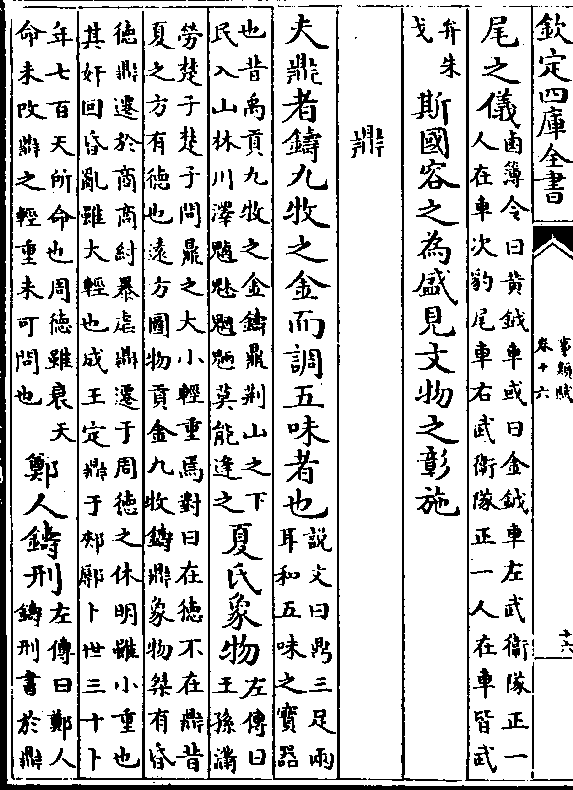 欽定四庫全書
事類賦
卷十六
十六
尾之儀
鹵簿令曰黄鉞車或曰金鉞車左武衛隊正一
人在車次豹尾車右武衛隊正一人在車皆武
弁朱
戈
斯國容之為盛見文物之彰施
鼎
夫鼎者鑄九牧之金而調五味者也
說文曰鼎三足兩
耳和五味之寶器
也昔禹貢九牧之金鑄鼎荆山之下
民入山林川澤魑魅魍魎莫能逢之
夏氏象物
左傳曰
王孫滿
勞楚子楚子問鼎之大小輕重焉對曰在德不在鼎昔
夏之方有德也遠方圖物貢金九牧鑄鼎象物桀有昏
德鼎遷於商商紂暴虐鼎遷于周德之休明雖小重也
其奸回昏亂雖大輕也成王定鼎于郟鄏卜世三十卜
年七百天所命也周德雖衰天
命未改鼎之輕重未可問也
鄭人鑄刑
左傳曰鄭人
鑄刑書於鼎